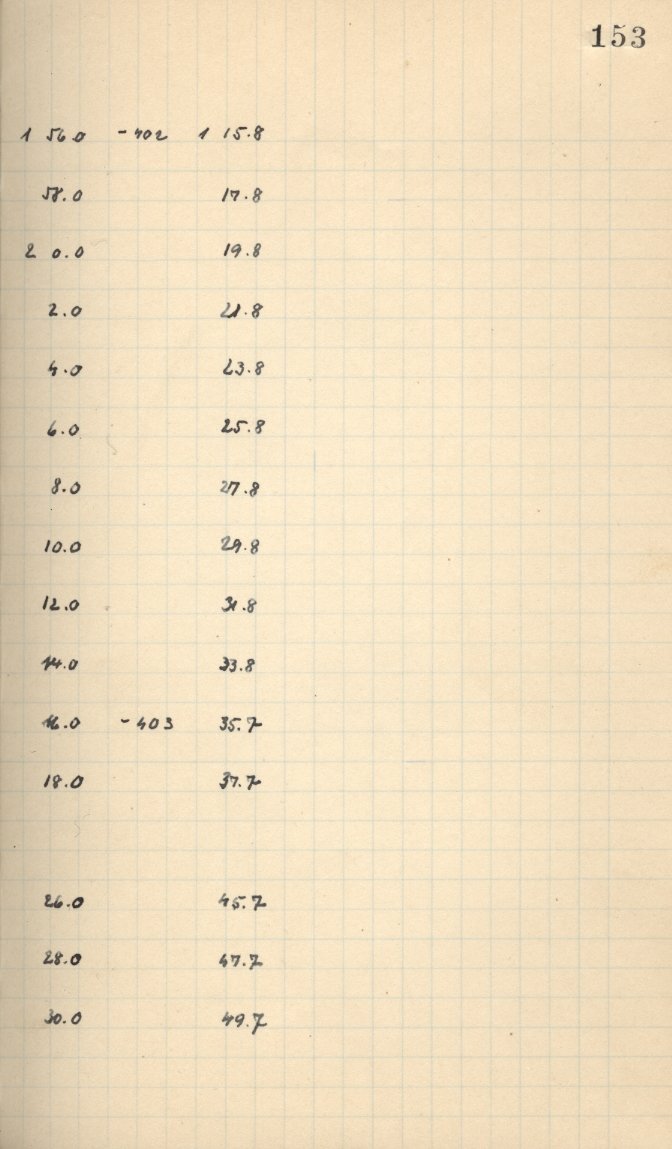 153
1 56.0 -402 1 15.8
58.0 17.8
2 0.0 19.8
2.0 21.8
4.0 23.8
6.0 25.8
8.0 27.8
10.0 29.8
12.0 31.8
14.0 33.8
16.0 -403 35.7
18.0 37.7
26.0 45.7
28.0 47.7
30.0 49.7